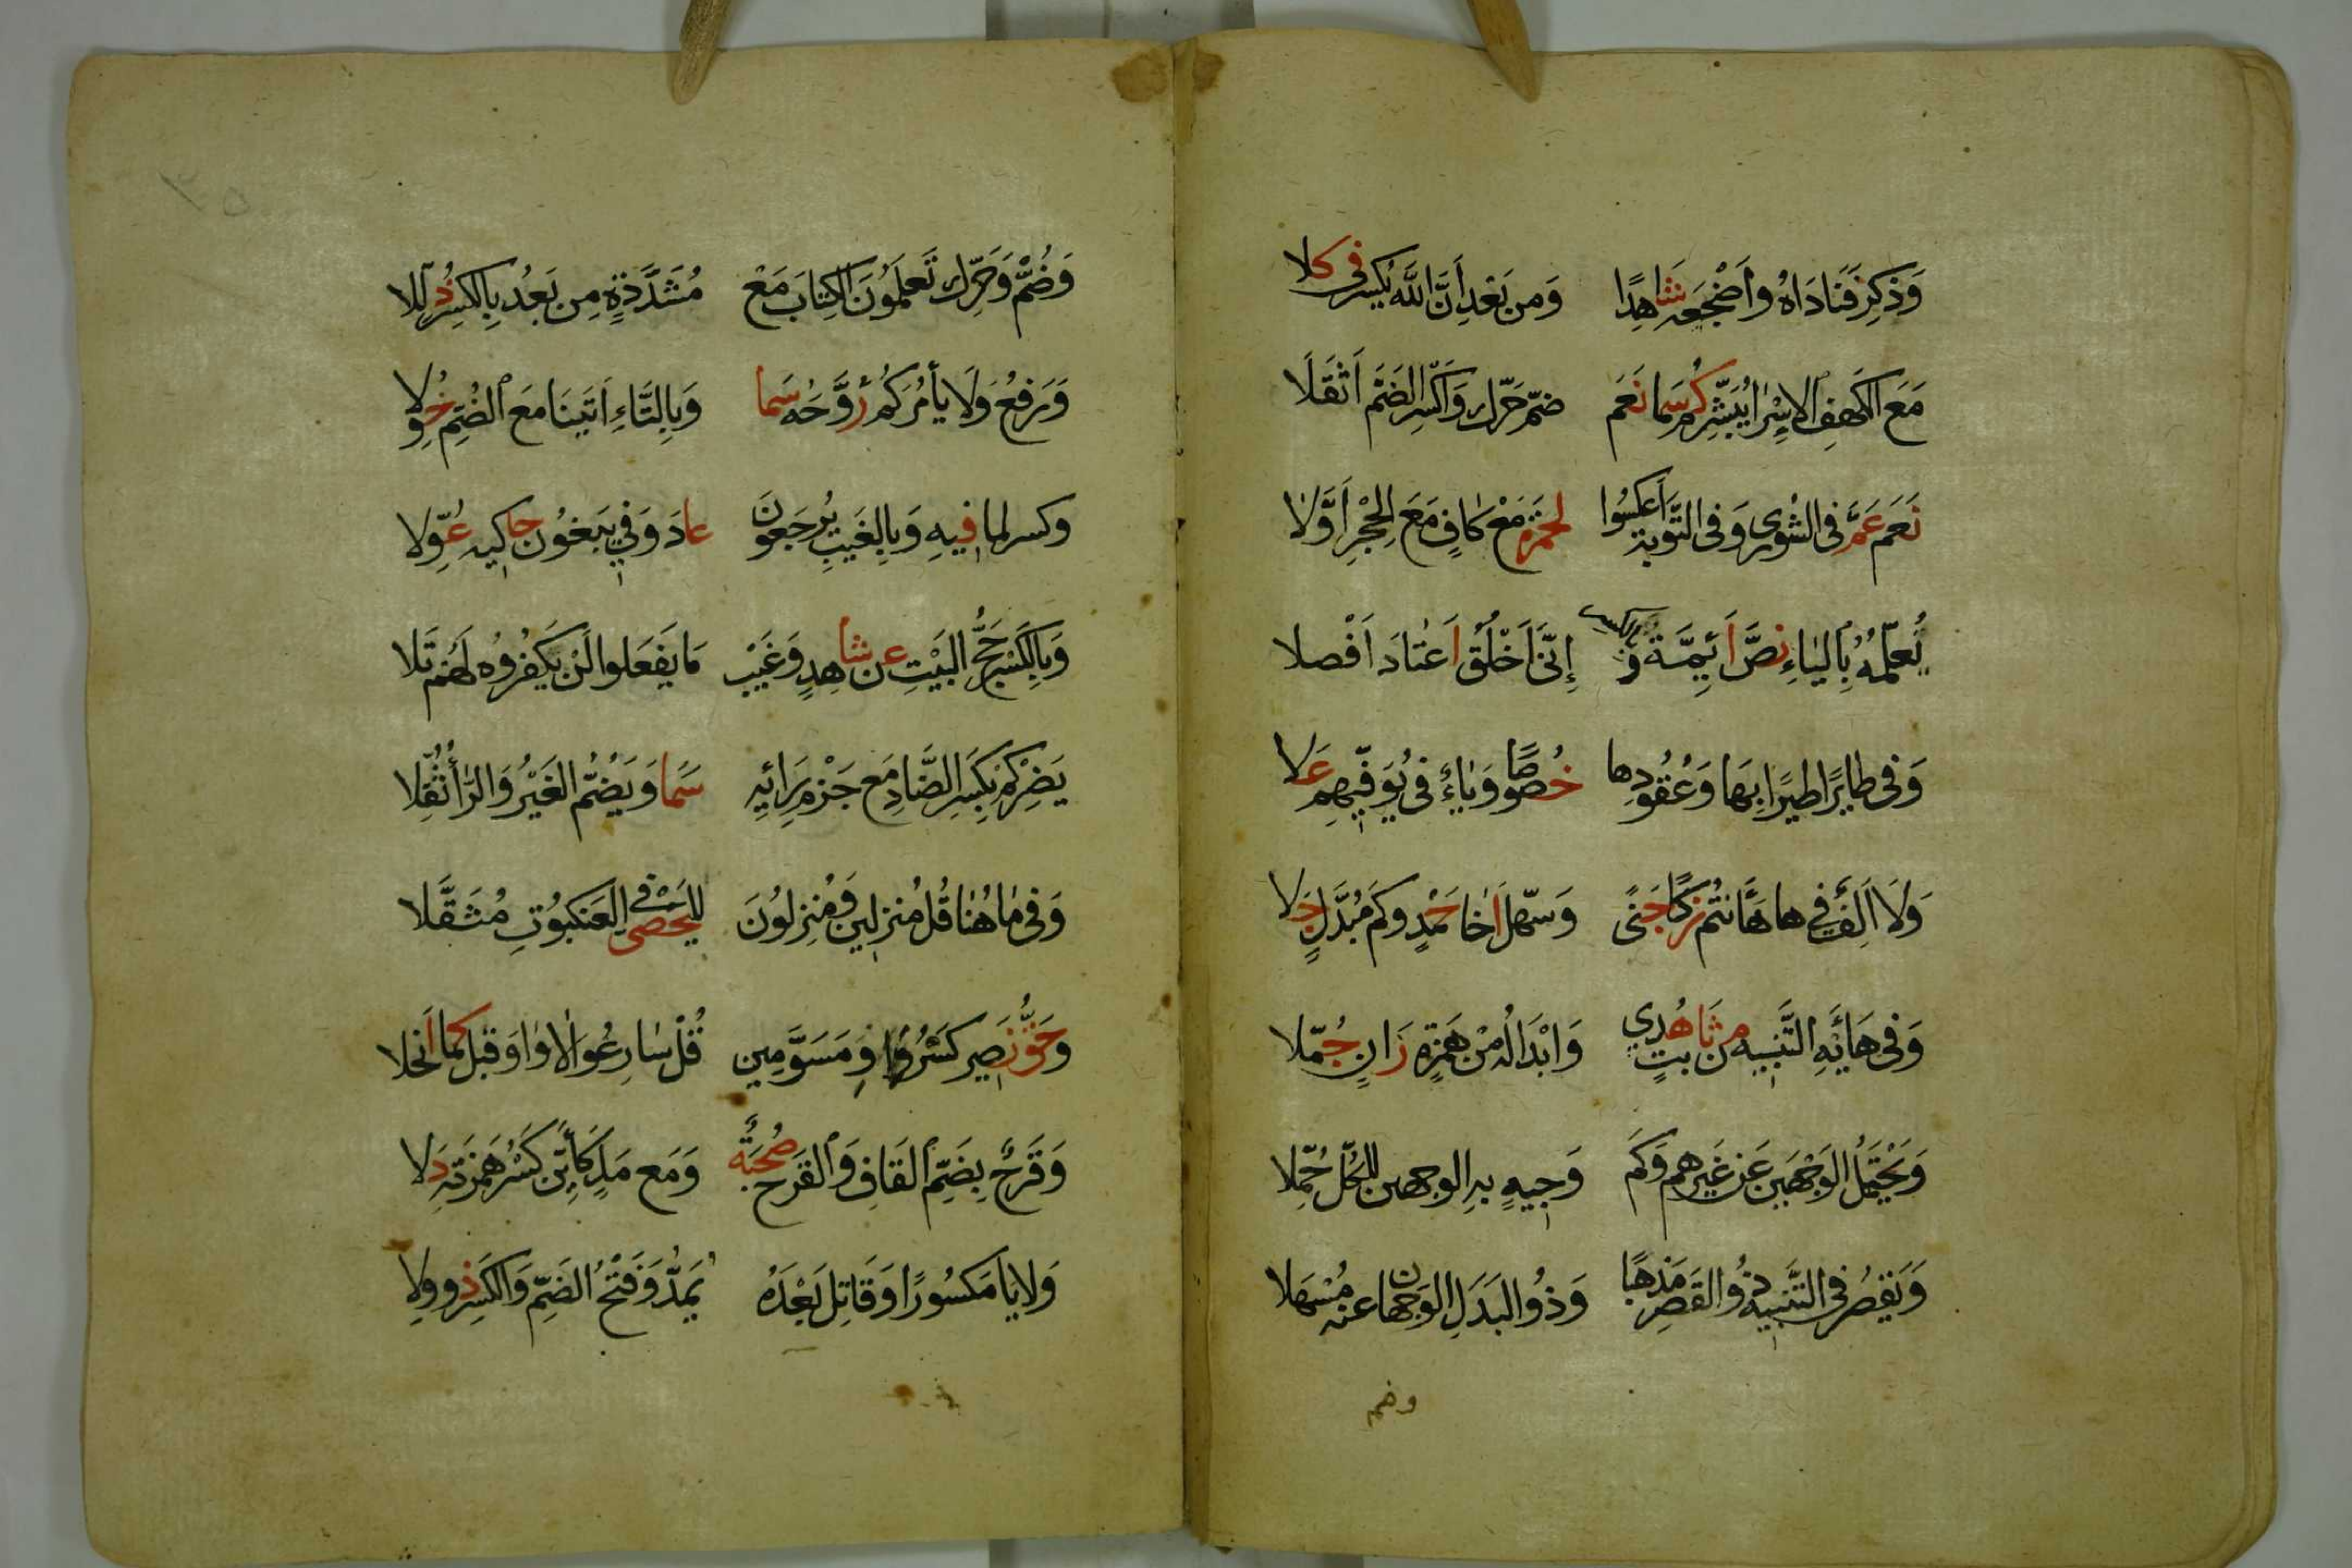 وَذَكِّرْ فَنَادَاهُ وأَضْجِعْهُ شَاهِدًا وَمِن بَعْدِ أَنَّ اللَّهَ يُكْسَرُ فى كِلا
مَعَ الكَهْفِ الاِسْرَا يُبَشِّرُ كَمْ سَمَا نَعَم ضُمَّ حَرِّك وَاكْسِرِ الضَّمَّ أَثْقَلَا
نَعَم عَمَّ فى الشُورى وَفى التَّوبَةِ أعكِسُوا لحمزة مَعْ كَافٍ مَعَ الحِجْرِ أَوَّلَا
نُعَلِّمُهُ بِاليَاءِ نصَّ أَئِمَّةٍ وبالكسر إِنِّى أَخْلُقُ أعْتَادَ أَفْصلا
وَفى طايرًا طيرًا بِهَا وَعُقُودِها خُصوصًا وَيَاءٌ فى يُوَفِّيهِم عَلا
وَلَا أَلِفٌ فى ها هَأَنتُم زكَا جَنًى وَسَهِّل أخَا حَمْدٍ وكَم مُبْدِلٍ جَلا
وَفى هَائِهِ التَّنبيه مِن ثَابتٍ هُدًى وَابْدَالُه مِنْ هَمْزَةٍ زَانَ جُمّلا
وَيَحْتَمِلُ الوَجْهَين عَن غَيرِهم وَكَم وَجِيهٍ بِهِ الوجهين للكُلِّ حُمِّلا
وَيَقْصُر فى التَّنبِيهِ ذُو القَصْرِ مَذْهَبًا وَذُو البَدَلِ الوَجهان عنه مُسْهَلا
وضم
٣٥
وَضُمَّ وَحَرِّك تَعلَمُونَ الكِتَابَ مَعْ مُشَدَّدَةٍ مِن بَعْدُ بِالكسرِ ذُلِّلا
وَرَفعُ وَلَا يأمُرْكُم رُوحُهُ سَما وَبِالتَّاءِ آتَينَا مَعَ الضَّمِّ خُوِّلا
وكسر لما فِيهِ وَبِالغَيبِ يُرجَعُونَ عادَ وَفى يَبغُون حاكيه عُوِّلا
وَبِالكَسْرِ حَجُّ البَيْتِ عن شاهِدٍ وَغَيْبُ مَا يَفعَلوا لَن يُكفَرُوه لَهُم تَلا
يَضِرْكُم بِكَسرِ الضَّادِ مَع جَزمِ رَائِهِ سَمَا وَيَضُمُّ الغَيْرُ وَالرَّا ثُقِّلا
وَفى مَا هُنَا قُل مُنزلين وَمُنزِلُونَ لليَحْصُبِى فى العَنكبُوتِ مُثَقَّلا
وَحَقُّ نَصِير كَسْرُ وَاوِ مُسَوَّمِين قُل سَارِعُوا لَا وَاوَ قبلُ كَمَا انجَلا
وَقَرحٌ بِضَمِّ القَافِ وَالقَرحُ صُحْبَةٌ وَمَع مَدِّ كَائِن كَسْرُ هَمْزَتِهِ دَلا
وَلا يَا مَكسُورًا وَقَاتِل بَعْدَهُ يُمَدُّ وَفَتْحُ الضَّمِّ وَالكَسرِ ذُو وِلا